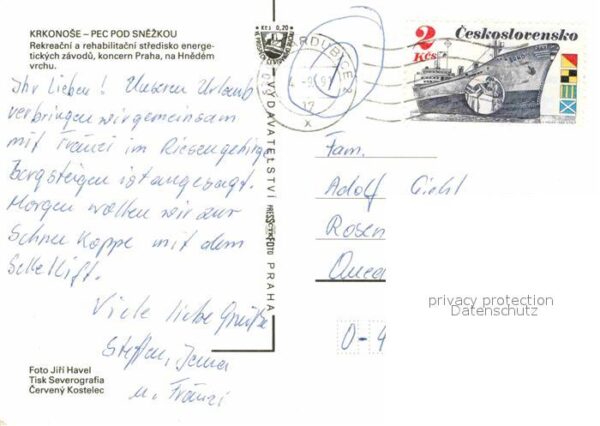 KRKONOŠE – PEC POD SNĚŽKOU
Rekreační a rehabilitační středisko energe-
tických závodů, koncern Praha, na Hnědém
vrchu.
Ihr Lieben! Unseren Urlaub
verbringen wir gemeinsam
mit Fränzi im Riesengebirge
Bergsteigen ist angesagt.
Morgen wollen wir zur
Schneekoppe mit dem
Sessellift.
Viele liebe Grüße
Steffen, Jena
u. Fränzi
Foto Jiří Havel
Tisk Severografia
Červený Kostelec
Kčs 0,20
VYDAVATELSTVÍ PRESSFOTO PRAHA
PARDUBICE 2
2
Kčs
Československo
Fam.
Adolf
Rosen
privacy protection
Datenschutz